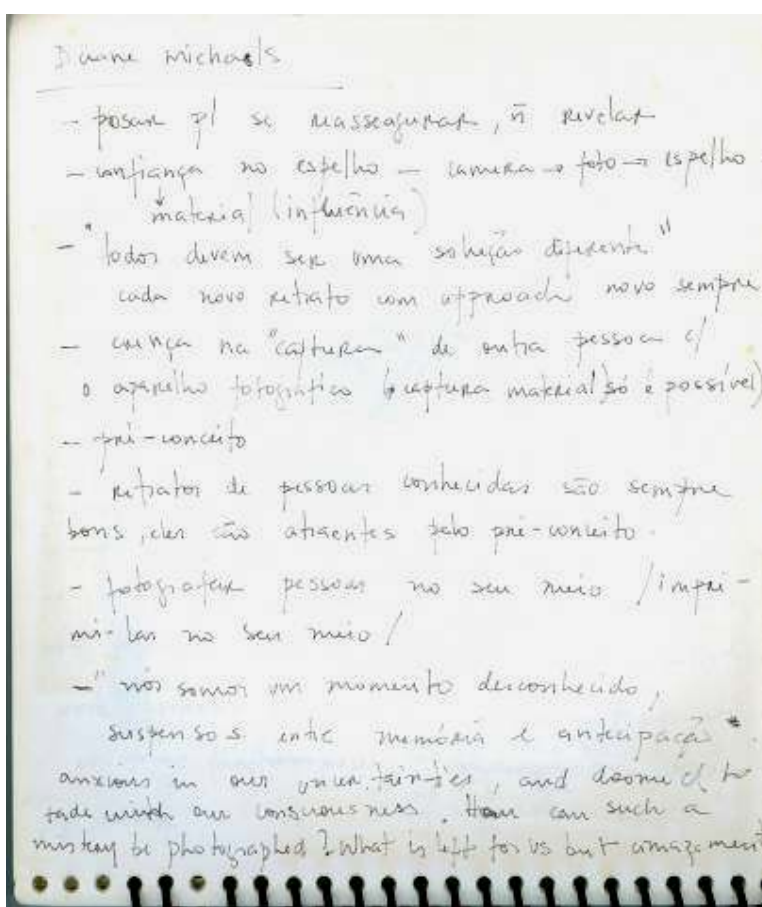 Duane Michaels
- posar p/ se reassegurar, ñ revelar
- confiança no espelho – camera → foto → espelho
material (influência)
- "todos devem ser uma solução diferente"
cada novo retrato com approach novo sempre
- crença na "captura" de outra pessoa c/
o aparelho fotográfico (captura material só é possível)
- pré-conceito
- retratos de pessoas conhecidas são sempre
bons, eles são atraentes pelo pré-conceito.
- fotografar pessoas no seu meio / impri-
mi-las no seu meio /
- "nós somos um momento desconhecido,
suspensos entre memória e antecipação".
anxious in our uncertainties, and doomed to
fade with our consciousness. How can such a
mistery be photographed? What is left for us but amazement